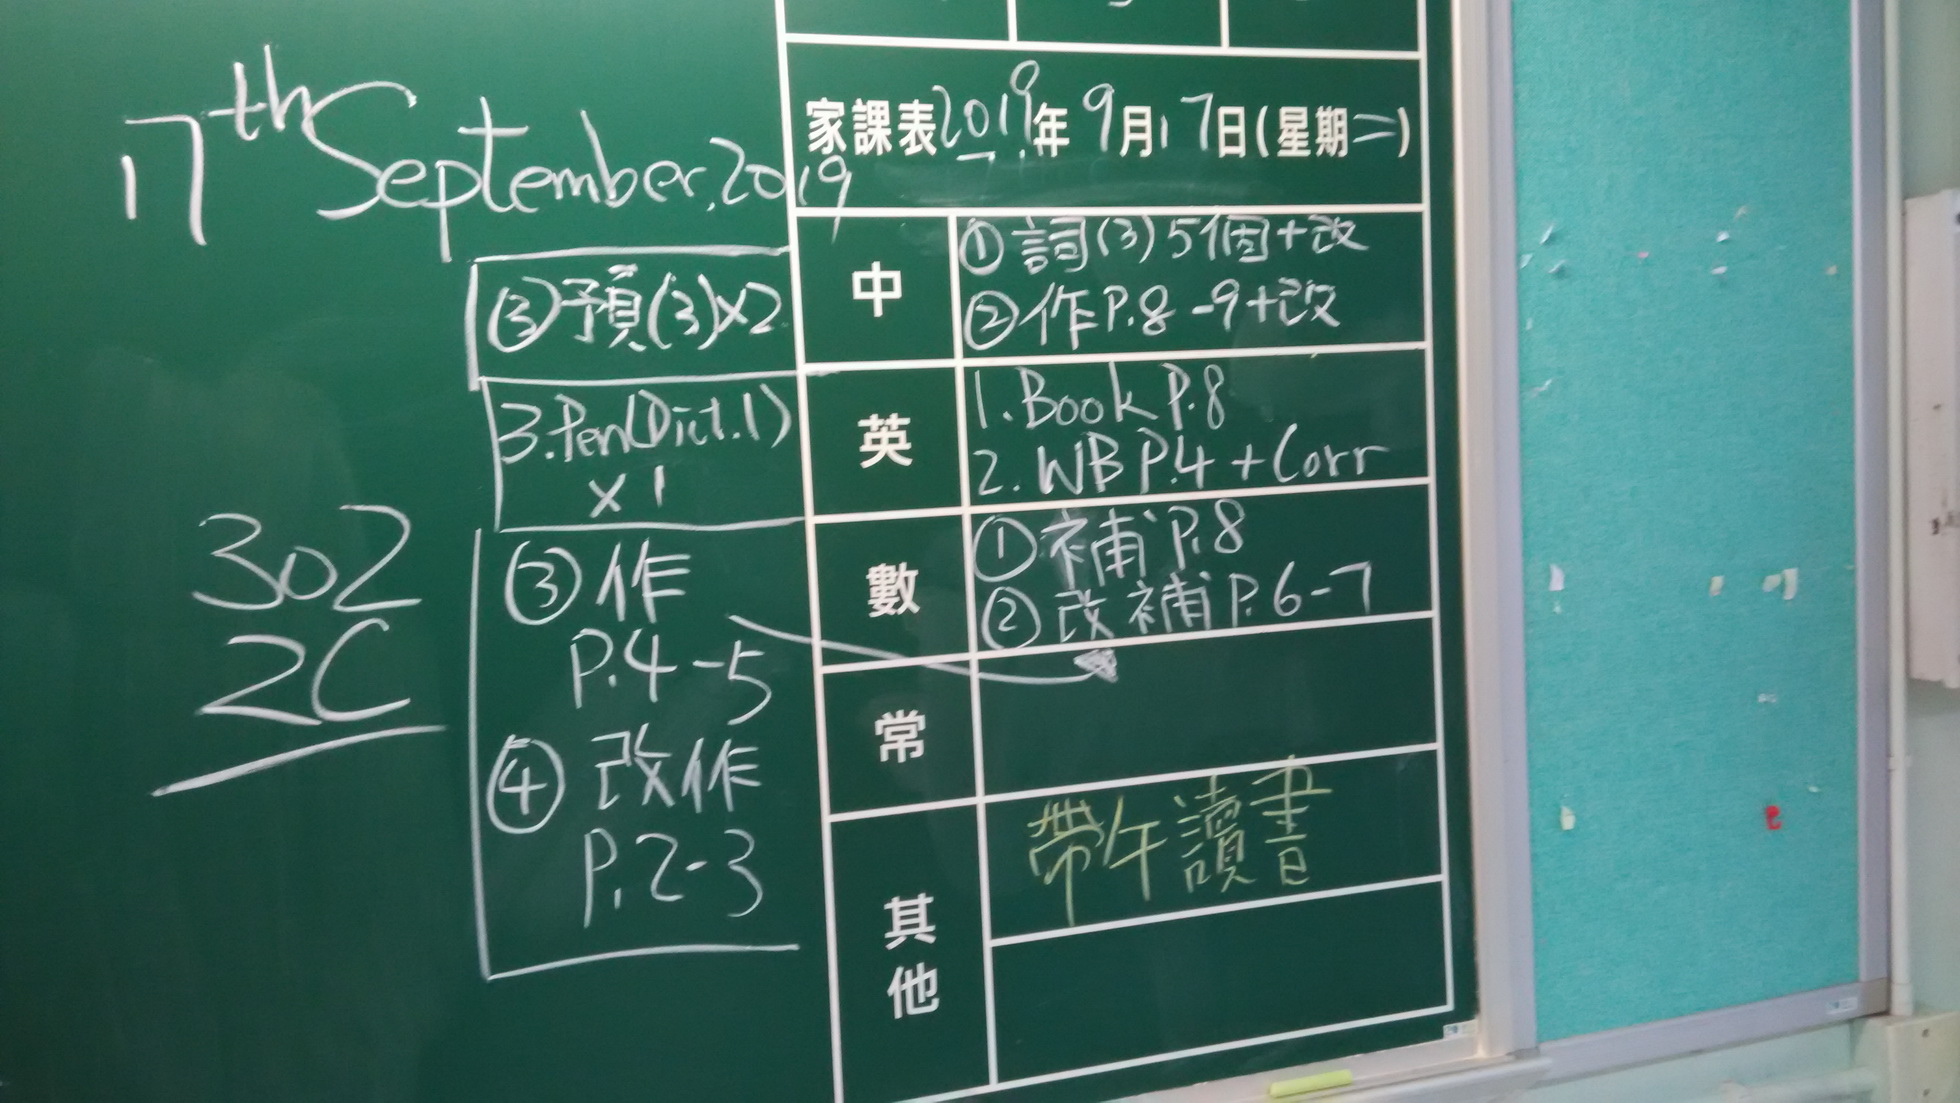 17th September, 2019
家課表2019年9月17日(星期二)
中
①詞(3)5個+改
②作P.8-9+改
③預(3)x2
英
1.Book P.8
2.WB P.4+Corr
3.Pen(Dict.1)
x1
數
①補P.8
②改補P.6-7
③作
P.4-5
④改作
P.2-3
常
其他
帶午讀書
302
2C